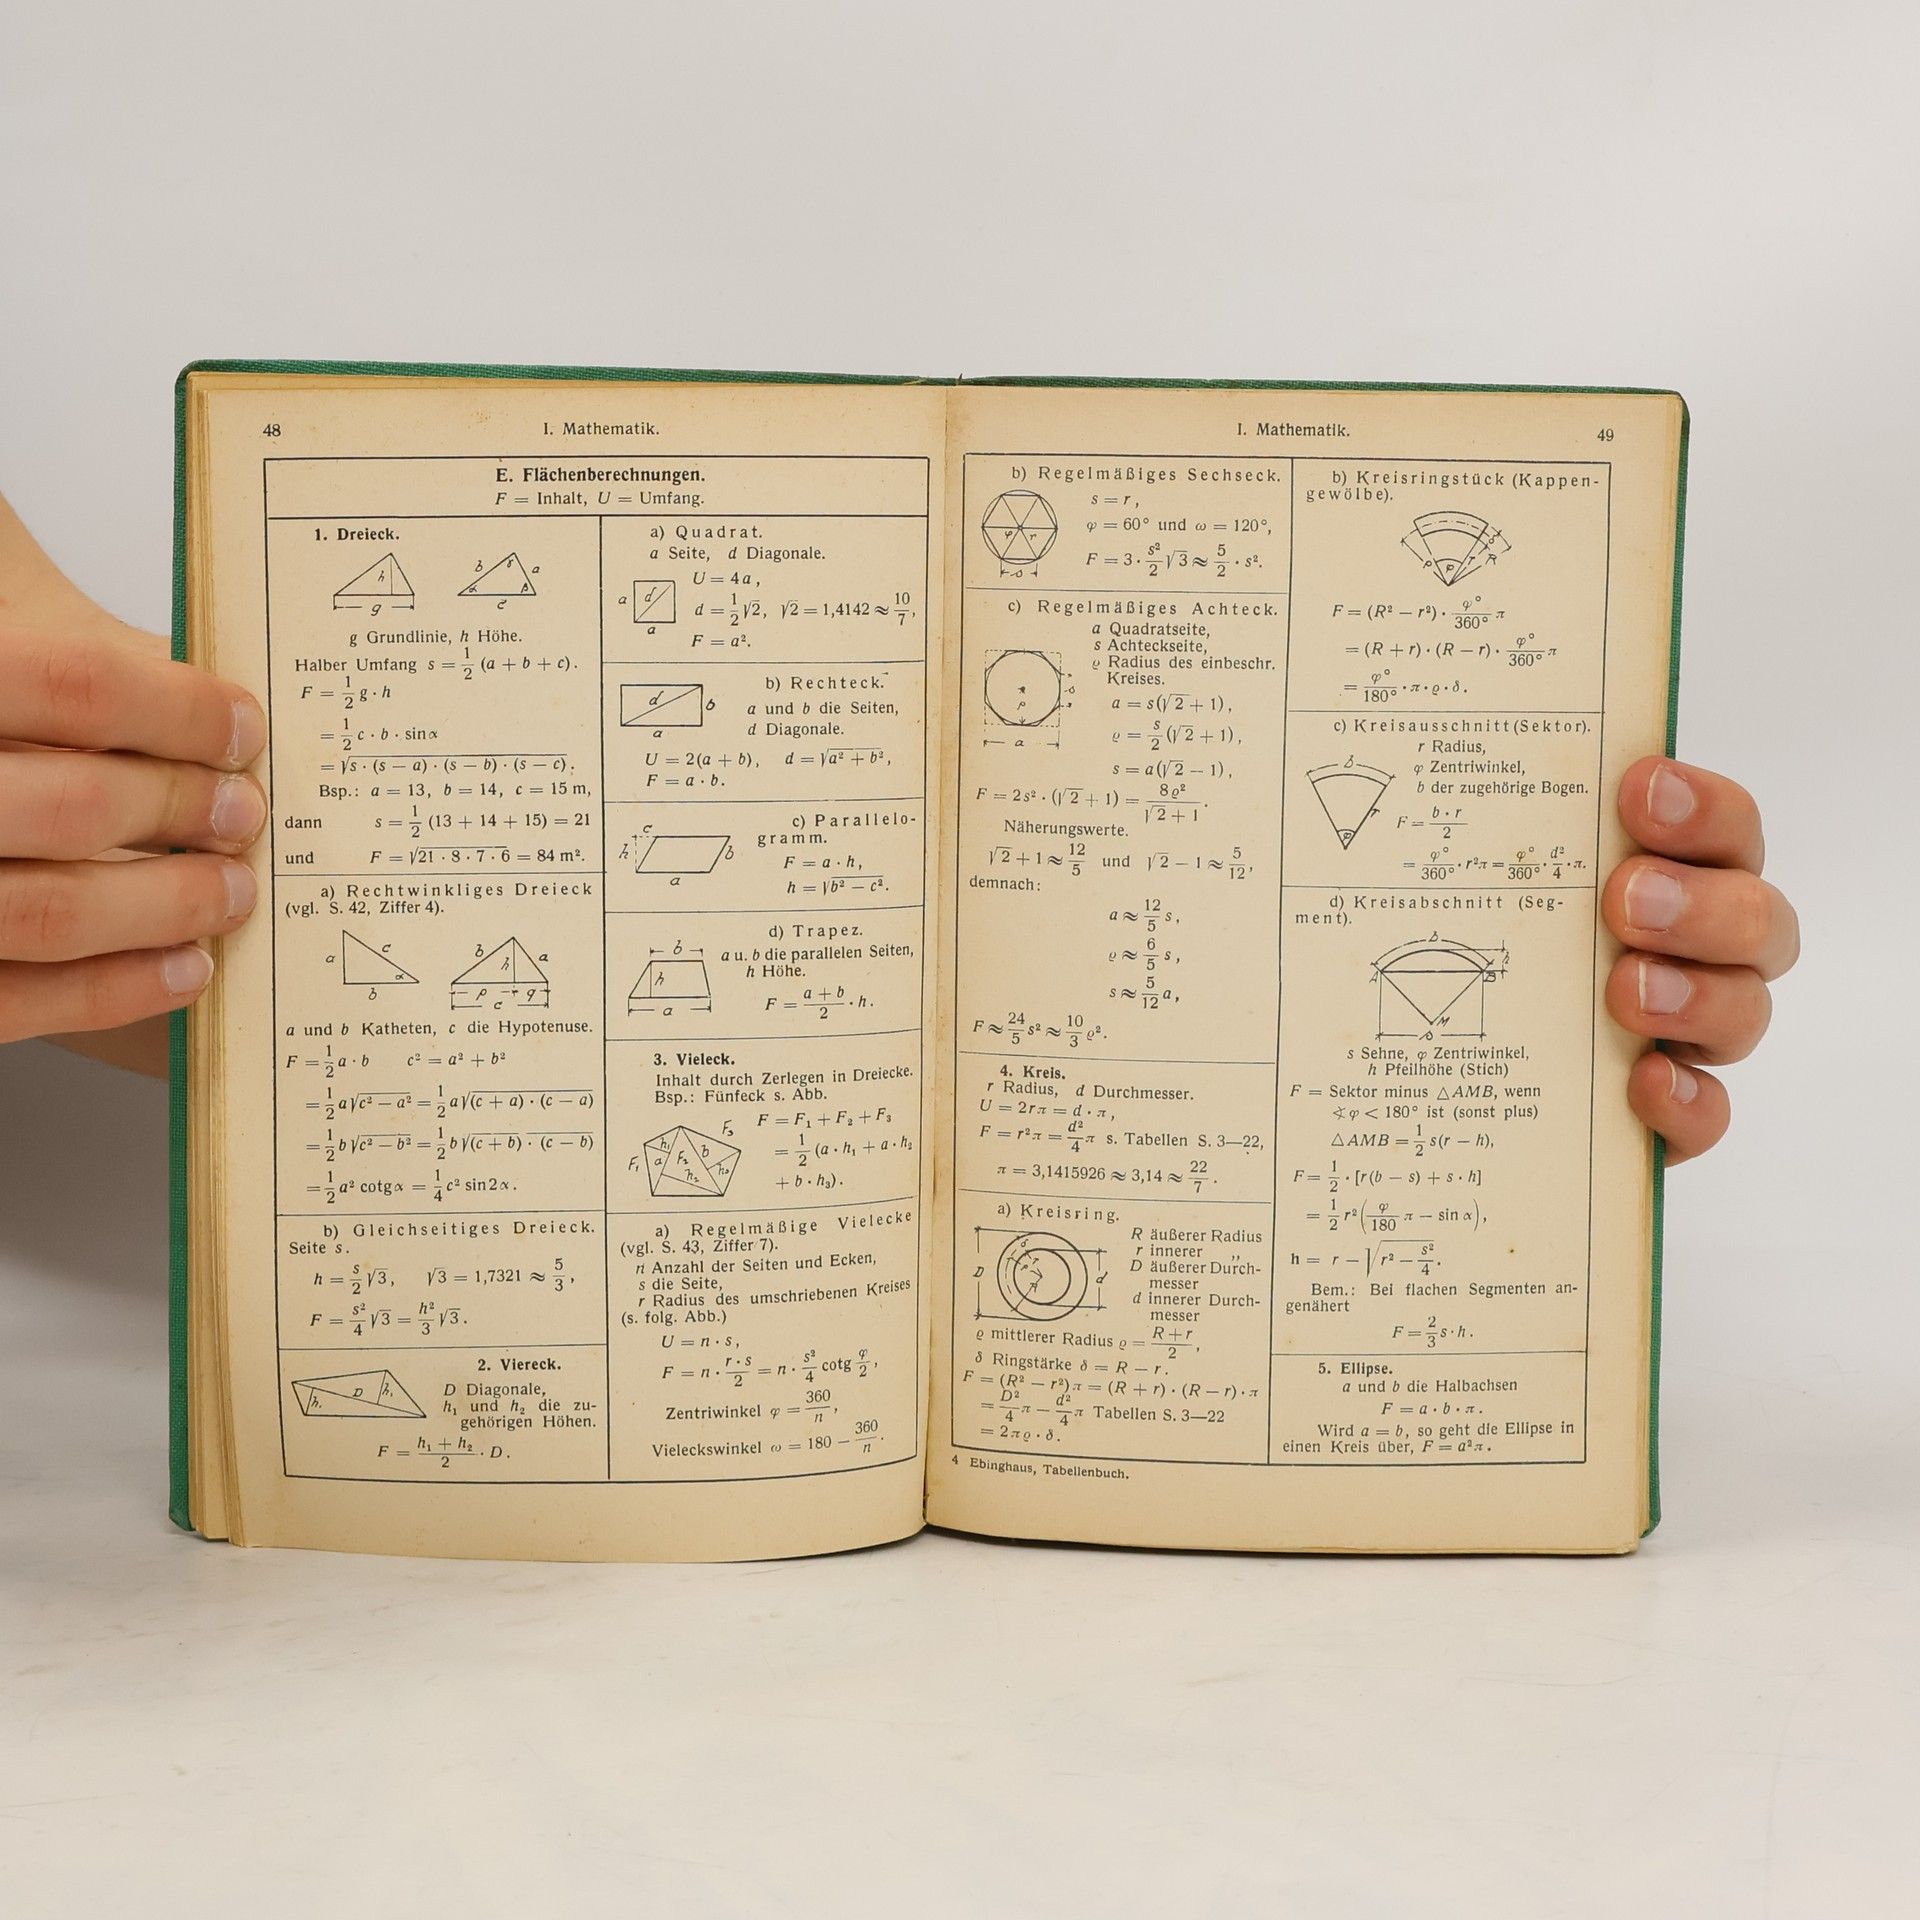 48
I. Mathematik.
E. Flächenberechnungen.
F = Inhalt, U = Umfang.
1. Dreieck.
h
g
b γ a
α β
c
g Grundlinie, h Höhe.
Halber Umfang s = 1/2 (a + b + c).
F = 1/2 g · h
= 1/2 c · b · sin α
= √s · (s − a) · (s − b) · (s − c).
Bsp.: a = 13, b = 14, c = 15 m,
dann s = 1/2 (13 + 14 + 15) = 21
und F = √21 · 8 · 7 · 6 = 84 m².
a) Rechtwinkliges Dreieck
(vgl. S. 42, Ziffer 4).
a c
α
b
b h a
p q
c
a und b Katheten, c die Hypotenuse.
F = 1/2 a · b c² = a² + b²
= 1/2 a √c² − a² = 1/2 a √(c + a) · (c − a)
= 1/2 b √c² − b² = 1/2 b √(c + b) · (c − b)
= 1/2 a² cotg α = 1/4 c² sin 2α.
b) Gleichseitiges Dreieck.
Seite s.
h = s/2 √3, √3 = 1,7321 ≈ 5/3,
F = s²/4 √3 = h²/3 √3.
2. Viereck.
D
D Diagonale,
h₁ und h₂ die zu-
gehörigen Höhen.
F = h₁ + h₂/2 · D.
a) Quadrat.
a Seite, d Diagonale.
a d
a
U = 4a,
d = 1/2 √2, √2 = 1,4142 ≈ 10/7,
F = a².
b) Rechteck.
d b
a
a und b die Seiten,
d Diagonale.
U = 2(a + b), d = √a² + b²,
F = a · b.
c) Parallelo-
gramm.
c
h b
a
F = a · h,
h = √b² − c².
d) Trapez.
b
h
a
a u. b die parallelen Seiten,
h Höhe.
F = a + b/2 · h.
3. Vieleck.
Inhalt durch Zerlegen in Dreiecke.
Bsp.: Fünfeck s. Abb.
F₁ h₁ a F₂ b F₃
h₂ h₃
F = F₁ + F₂ + F₃
= 1/2 (a · h₁ + a · h₂
+ b · h₃).
a) Regelmäßige Vielecke
(vgl. S. 43, Ziffer 7).
n Anzahl der Seiten und Ecken,
s die Seite,
r Radius des umschriebenen Kreises
(s. folg. Abb.)
U = n · s,
F = n · r · s/2 = n · s²/4 cotg φ/2,
Zentriwinkel φ = 360/n,
Vieleckswinkel ω = 180 − 360/n.
I. Mathematik.
49
b) Regelmäßiges Sechseck.
φ r
s
s = r,
φ = 60° und ω = 120°,
F = 3 · s²/2 √3 ≈ 5/2 · s².
c) Regelmäßiges Achteck.
a Quadratseite,
s Achteckseite,
ϱ Radius des einbeschr.
Kreises.
ϱ
s
a
a = s(√2 + 1),
ϱ = s/2 (√2 + 1),
s = a(√2 − 1),
F = 2s² · (√2 + 1) = 8ϱ²/√2 + 1.
Näherungswerte.
√2 + 1 ≈ 12/5 und √2 − 1 ≈ 5/12,
demnach:
a ≈ 12/5 s,
ϱ ≈ 6/5 s,
s ≈ 5/12 a,
F ≈ 24/5 s² ≈ 10/3 ϱ².
4. Kreis.
r Radius, d Durchmesser.
U = 2rπ = d · π,
F = r²π = d²/4 π s. Tabellen S. 3—22,
π = 3,1415926 ≈ 3,14 ≈ 22/7.
a) Kreisring.
D d
R äußerer Radius
r innerer „
D äußerer Durch-
messer
d innerer Durch-
messer
ϱ mittlerer Radius ϱ = R + r/2,
δ Ringstärke δ = R − r.
F = (R² − r²) π = (R + r) · (R − r) · π
= D²/4 π − d²/4 π Tabellen S. 3—22
= 2πϱ · δ.
4 Ebinghaus, Tabellenbuch.
b) Kreisringstück (Kappen-
gewölbe).
φ R
F = (R² − r²) · φ°/360° π
= (R + r) · (R − r) · φ°/360° π
= φ°/180° · π · ϱ · δ.
c) Kreisausschnitt (Sektor).
b
r
φ
r Radius,
φ Zentriwinkel,
b der zugehörige Bogen.
F = b · r/2
= φ°/360° · r²π = φ°/360° · d²/4 · π.
d) Kreisabschnitt (Seg-
ment).
b
h
A B
M
s
s Sehne, φ Zentriwinkel,
h Pfeilhöhe (Stich)
F = Sektor minus △AMB, wenn
∢ φ < 180° ist (sonst plus)
△AMB = 1/2 s(r − h),
F = 1/2 · [r(b − s) + s · h]
= 1/2 r² (φ/180 π − sin α),
h = r − √r² − s²/4.
Bem.: Bei flachen Segmenten an-
genähert
F = 2/3 s · h.
5. Ellipse.
a und b die Halbachsen
F = a · b · π.
Wird a = b, so geht die Ellipse in
einen Kreis über, F = a²π.